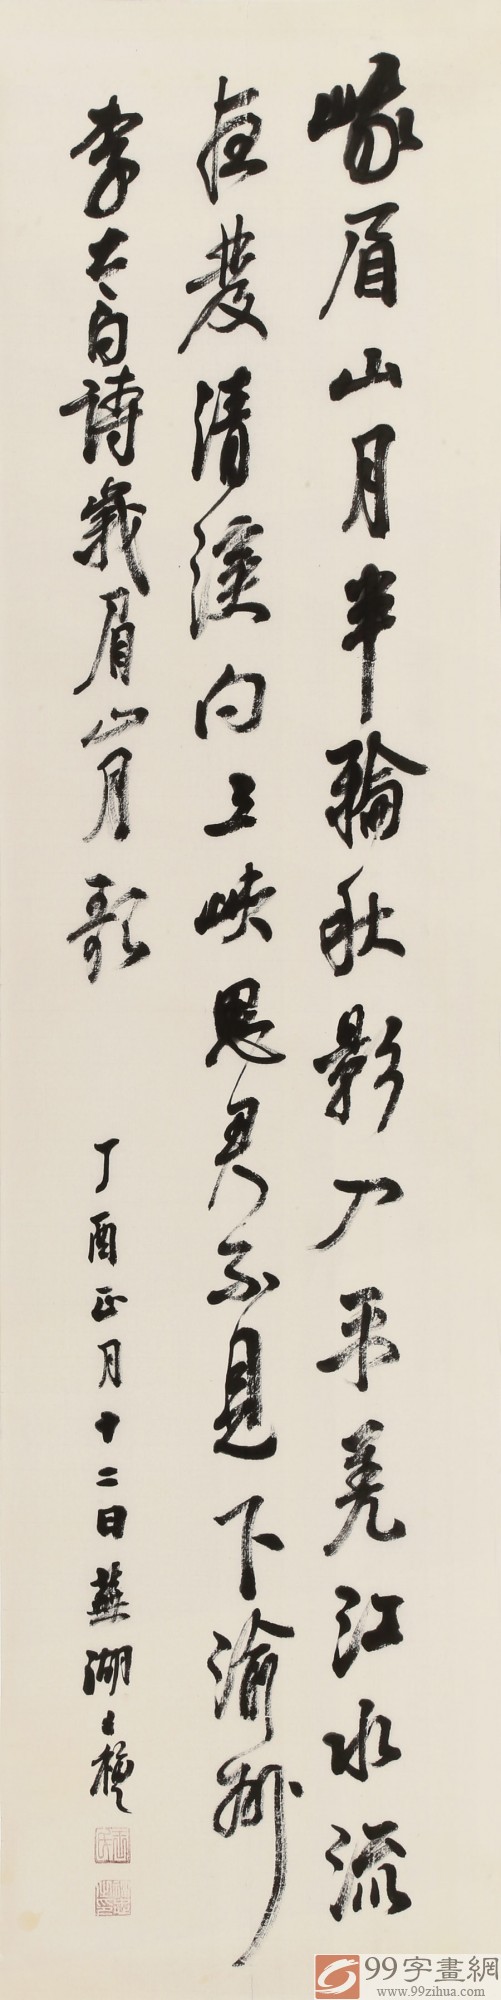 峨眉山月半輪秋影入平羌江水流
夜發清溪向三峽思君不見下渝州
李太白詩峩眉山月歌
丁酉正月十二日蕪湖
99字畫網
www.99zihua.com